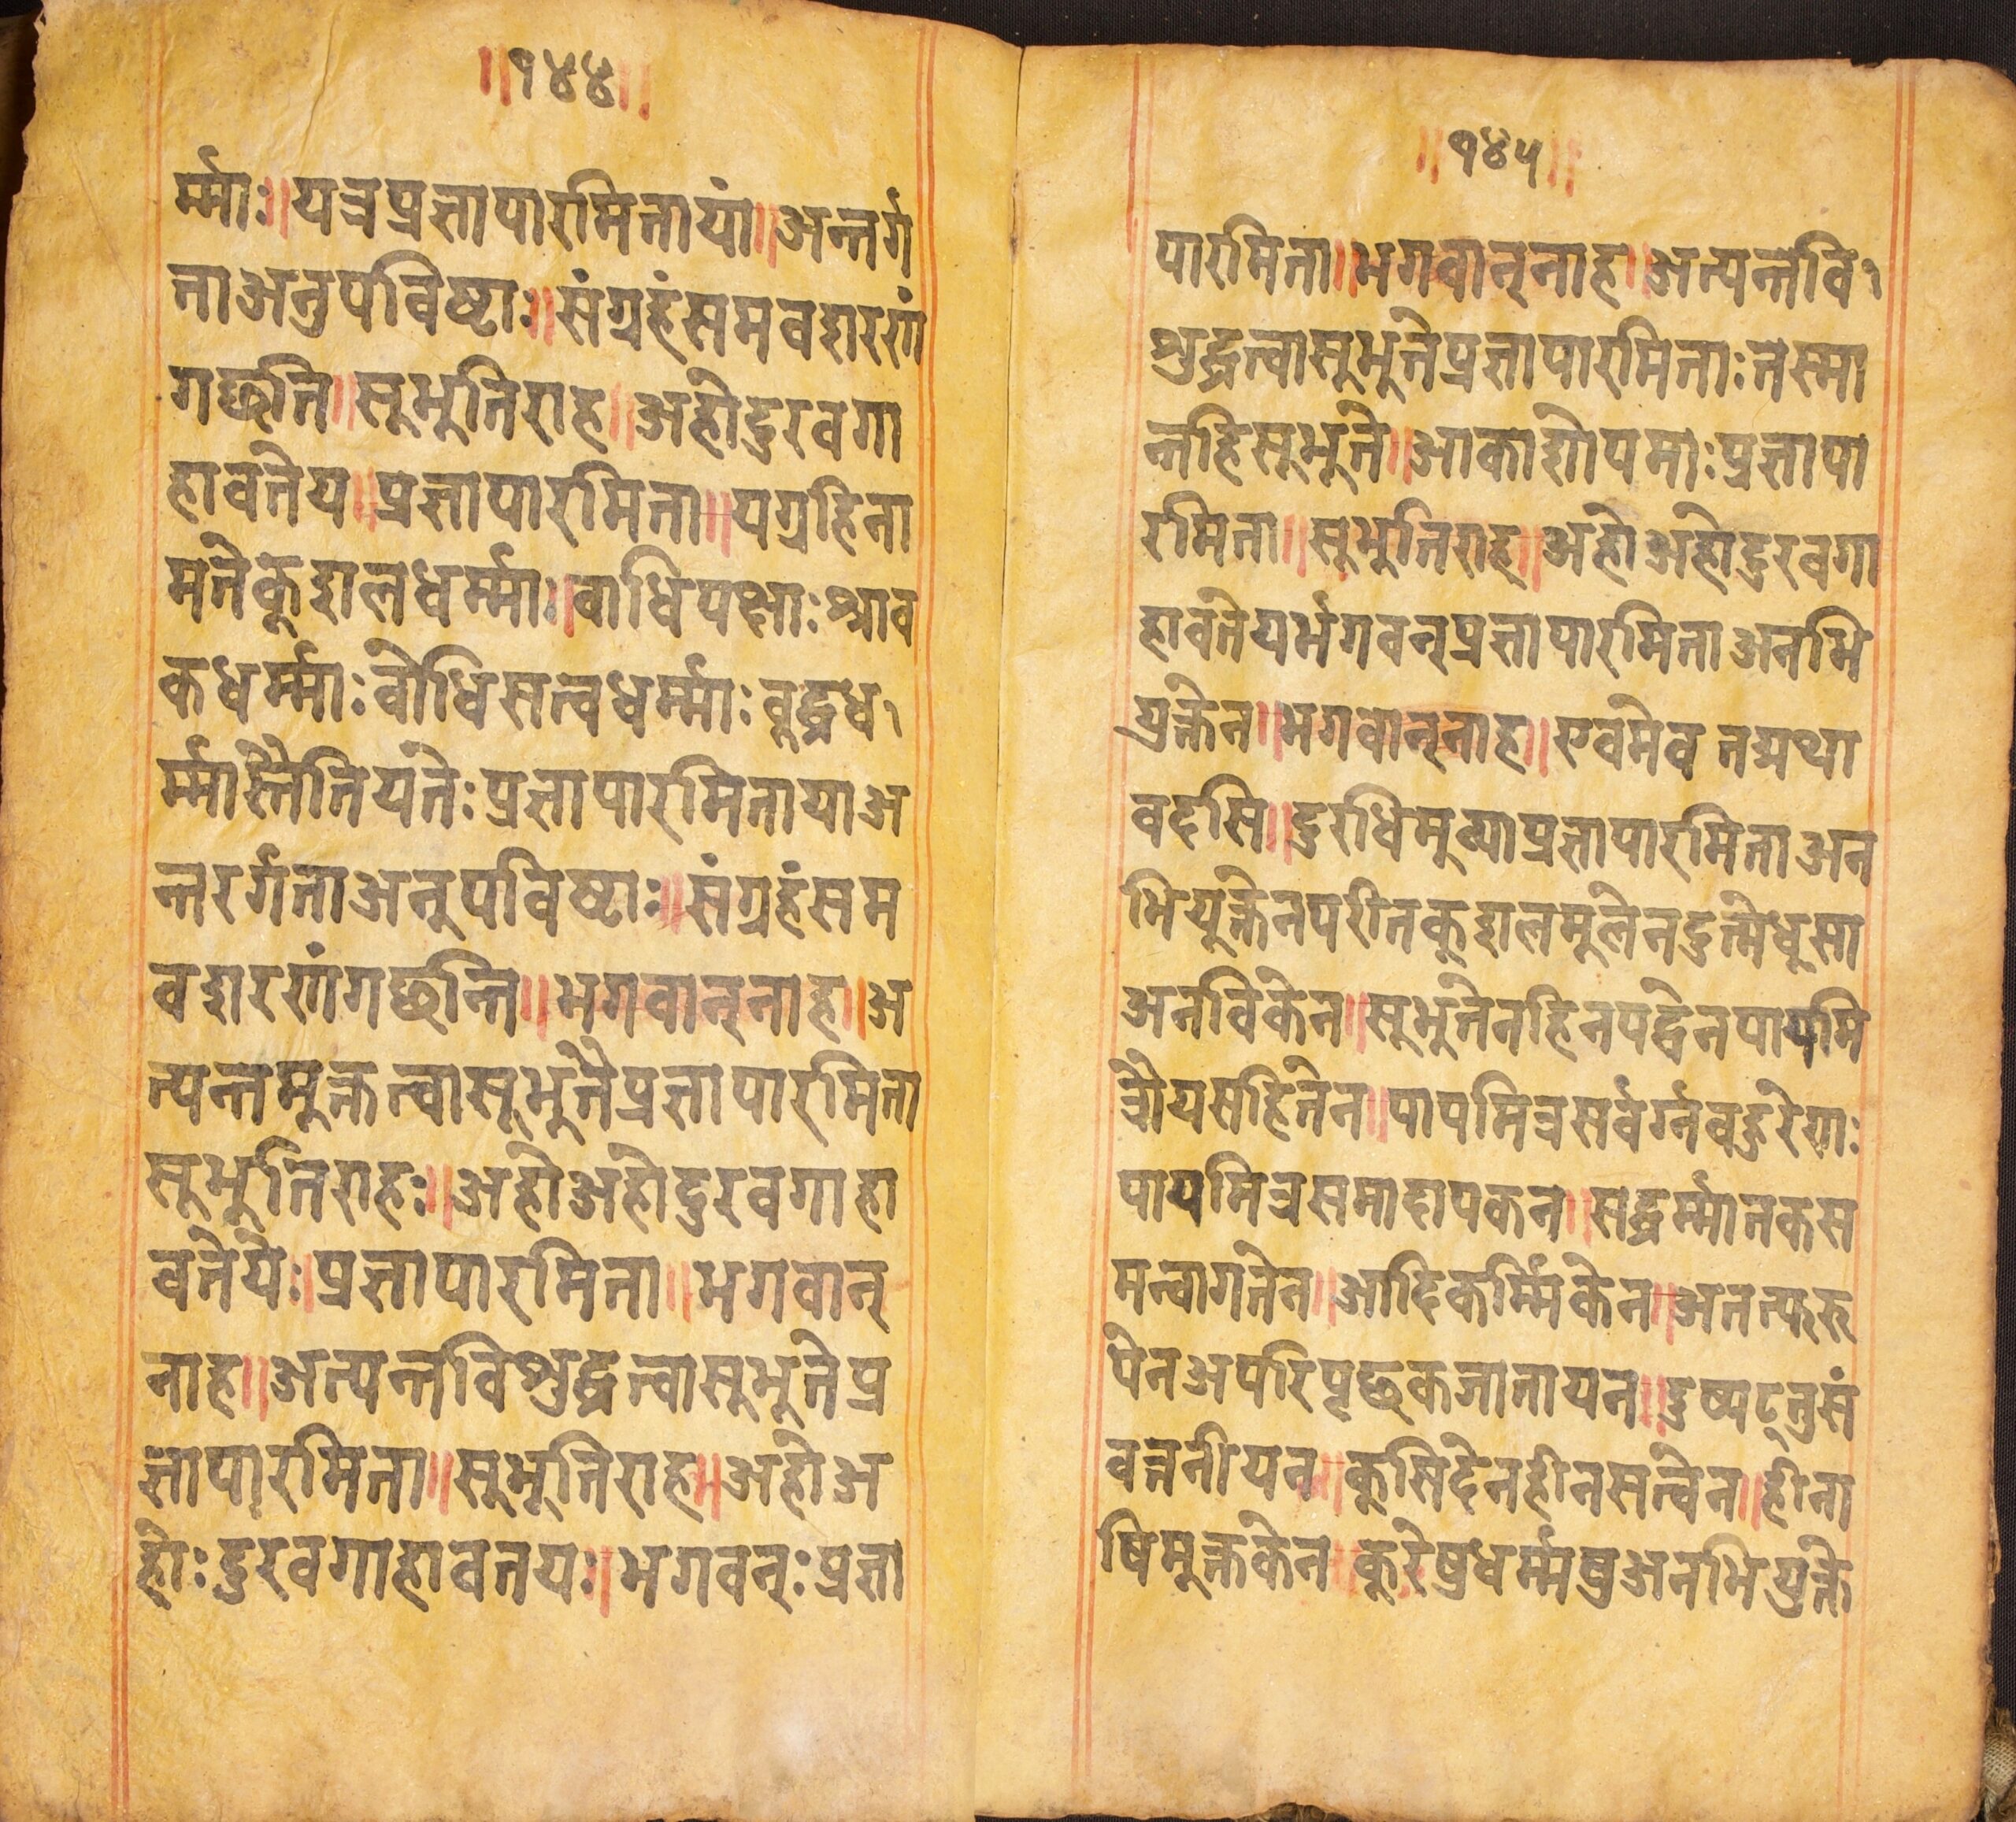 ॥१४४॥
र्म्माः॥यत्रप्रज्ञापारमितायां॥अन्तर्ग
ताअनुपविष्टाः॥संग्रहंसमवशरणं
गछन्ति॥सूभुतिराह॥अहोदुरवगा
हावतेय॥प्रज्ञापारमिता॥यग्रहिता
मतेकूशलधर्म्माः॥वाधिपक्षाःश्राव
कधर्म्माःवोधिसत्वधर्म्माःवूद्धध
र्म्मास्तैतियतेःप्रज्ञापारमितायाअ
न्तरर्गताअनूपविष्टाः॥संग्रहंसम
वशरणंगछन्ति॥भगवान्नाह॥अ
त्यन्तमुक्तत्वासूभुतैप्रज्ञापारमिता
सूभुतिराहः॥अहोअहोदुरवगाहा
वतेयेः॥प्रज्ञापारमिता॥भगवान्
नाह॥अत्यन्तविशुद्धत्वासुभूतेप्र
ज्ञापारमिता॥सुभूतिराह॥अहोअ
होःदुरवगाहावतयः॥भगवन्ःप्रज्ञा
॥१४५॥
पारमिता॥भगवान्नाह॥अत्यन्तवि
शुद्धत्वासुभुतेप्रज्ञापारमिताःतस्मा
त्तहिसूभूते॥आकाशोपमाःप्रज्ञापा
रमिता॥सूभुतिराह॥अहोअहोदुरवगा
हावतेयर्भगवन्प्रज्ञापारमिताअनभि
युक्तेन॥भगवान्नाह॥एवमेवतद्यथा
वदसि॥दुरधिमूच्याप्रज्ञापारमिताअन
भियूक्तेनपरीतकूशलमूलेनदुर्मेधूसा
अनविकेन॥सूभुतेनहिनपद्वेनपायमि
त्रोयसहितेन॥पापमित्रसर्वर्ग्नवदुरेणाः
पायमित्रसमादापकन॥सद्धर्म्मान्तकस
मन्वागतेन॥आदिकर्म्मिकेन॥अतत्फरु
पेनअपरिपृछकजानायन॥दुष्यट्नुसं
वत्तनीयन॥कूसिदेनहीनसत्वेन॥हीना
षिमूक्तकेन कूरेषुधर्म्मषुअनभियुक्ते